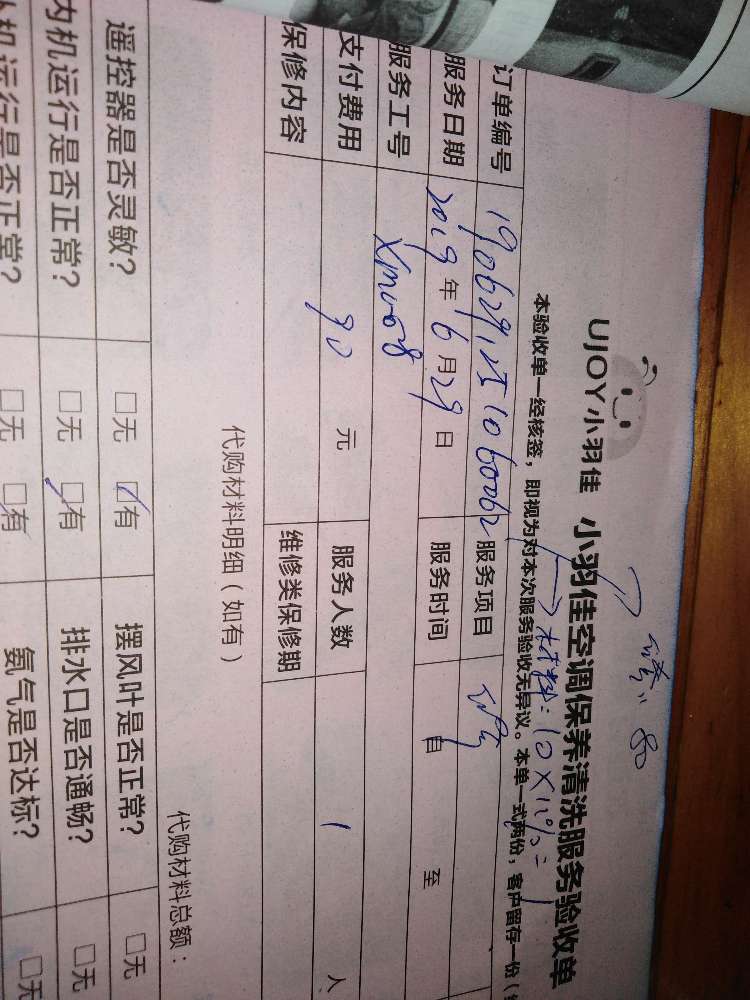 UJOY小羽佳 小羽佳空调保养清洗服务验收单
本验收单一经核签，即视为对本次服务验收无异议。本单一式两份，客户留存一份
订单编号 服务项目
服务日期 2019年6月29日 服务时间 自 至
服务工号
支付费用 90 元 服务人数 1 人
保修内容 维修类保修期
代购材料明细（如有） 代购材料总额：
遥控器是否灵敏？ □无 ☑有 摆风叶是否正常？ □无
内机运行是否正常？ □无 ☑有 排水口是否通畅？ □无
外机运行是否正常？ □无 ☑有 氨气是否达标？ □无